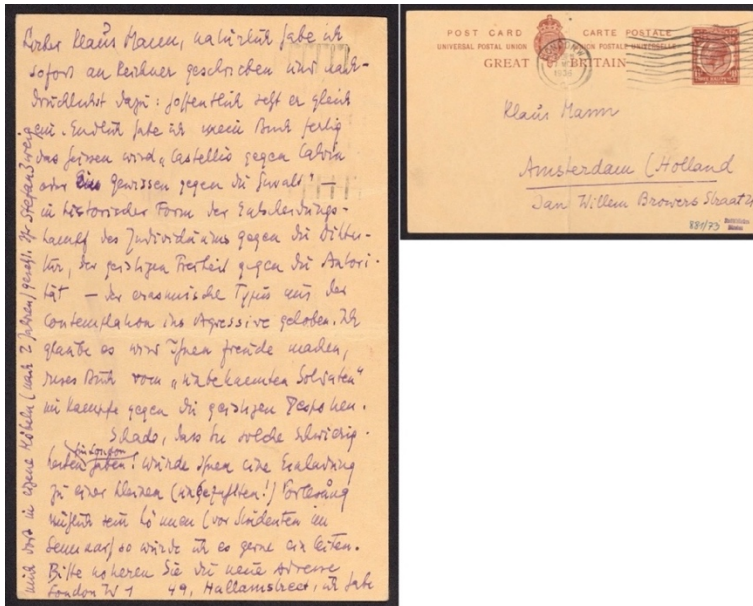 Lieber Klaus Mann, natürlich habe ich
sofort an Reichner geschrieben und nach-
drücklichst dazu: hoffentlich geht er gleich
ein. Endlich habe ich mein Buch fertig
das heissen wird „Castellio gegen Calvin
oder Ein Gewissen gegen die Gewalt" –
in historischer Form der Entscheidungs-
kampf des Individuums gegen die Dikta-
tur, der geistigen Freiheit gegen die Autori-
tät – der erasmische Typus aus der
Contemplation ins Agressive gehoben. Ich
glaube es wird Ihnen freude machen,
dieses Buch vom „unbekannten Soldaten"
im Kampfe gegen die geistigen Despoten.
Schade, dass Sie solche Schwierig-
keiten in London haben! Würde Ihnen eine Einladung
zu einer kleinen (ungezahlten!) Vorlesung
nützlich sein können (vor Studenten im
Seminar) so würde ich es gerne einleiten.
Bitte notieren Sie die neue Adresse
London W 1 49, Hallamstreet, ich habe
mich dort in eigene Möbeln (nach 2 Jahren) gesetzt. Ihr Stefan Zweig
POST CARD CARTE POSTALE
UNIVERSAL POSTAL UNION UNION POSTALE UNIVERSELLE
GREAT BRITAIN
LONDON
1936
Klaus Mann
Amsterdam (Holland
Jan Willem Browers Straat 21
881/73